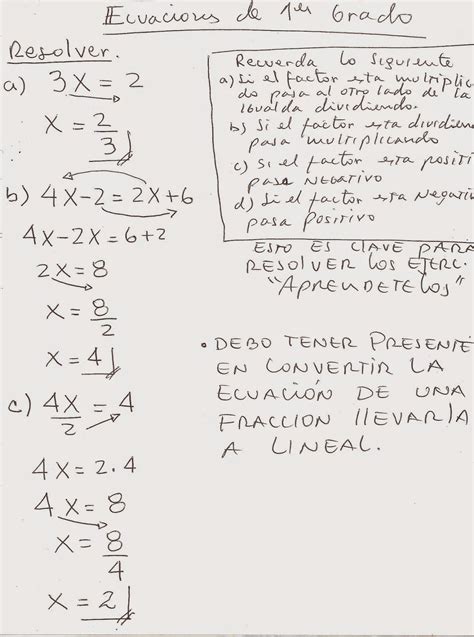 Ecuaciones de 1er Grado
Resolver.
a) 3X = 2
X = 2/3
b) 4X-2 = 2X+6
4X-2X = 6+2
2X = 8
X = 8/2
X = 4
c) 4X/2 = 4
4X = 2.4
4X = 8
X = 8/4
X = 2
Recuerda lo siguiente
a) Si el factor esta multiplic
do pasa al otro lado de la
igualda dividiendo.
b) Si el factor esta dividien
pasa multiplicando
c) Si el factor esta positi
pasa NEGATIVO
d) Si el factor esta Negati
pasa Positivo
ESTO ES CLAVE PARA
RESOLVER LOS EJERC.
"APRENDETELOS"
• DEBO TENER PRESENTE
EN CONVERTIR LA
ECUACIÓN DE UNA
FRACCION llEVARlA
A LINEAL.